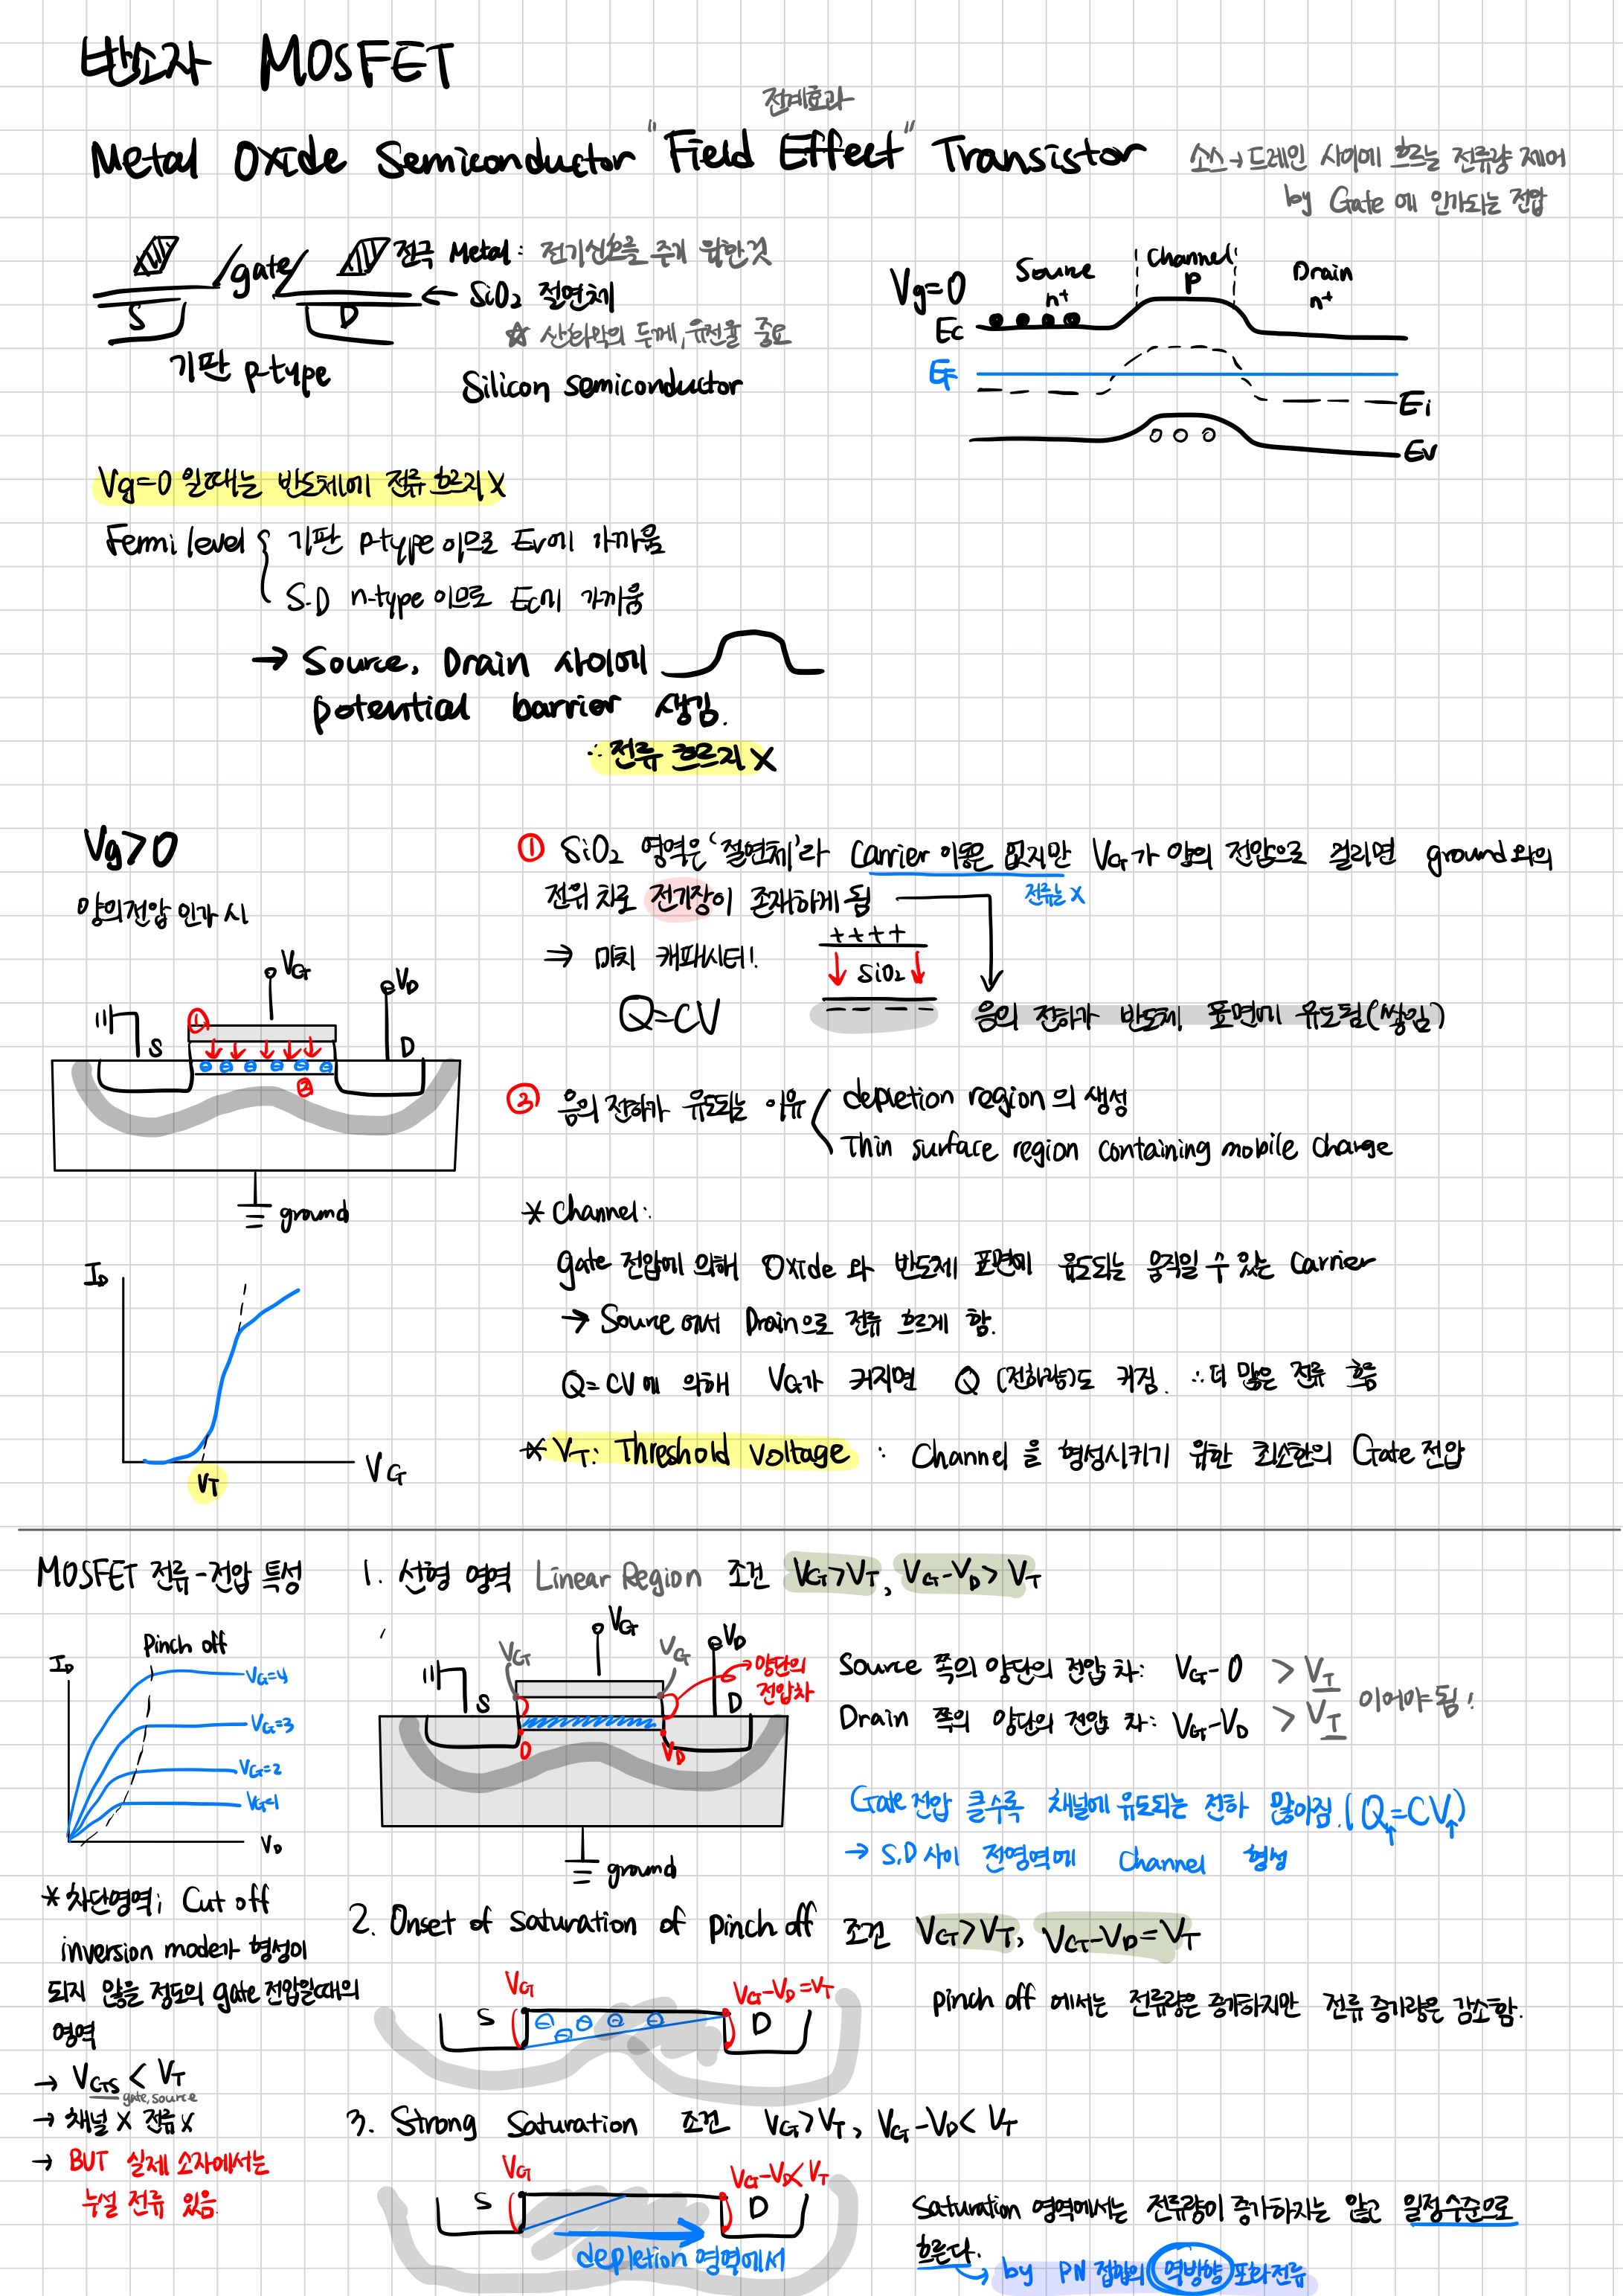 반소자 MOSFET
전계효과
Metal Oxide Semiconductor "Field Effect" Transistor
소스→드레인 사이에 흐르는 전류량 제어
by Gate 에 인가되는 전압
gate
전극 Metal : 전기신호를 주기 위한것
← SiO2 절연체
☆ 산화막의 두께, 유전율 중요
S
D
기판 p-type
Silicon semiconductor
Vg=0
Source
n+
Channel
P
Drain
n+
Ec
EF
Ei
Ev
Vg=0 일때는 반도체에 전류 흐르지 X
Fermi level { 기판 p-type 이므로 Ev에 가까움
S.D n-type 이므로 Ec에 가까움
→ Source, Drain 사이에
potential barrier 생김.
∴ 전류 흐르지 X
Vg>0
양의전압 인가 시
① SiO2 영역은 '절연체'라 Carrier 이동은 없지만 VG가 양의 전압으로 걸리면 ground와의
전류는 X
전위 차로 전기장이 존재하게 됨
⇒ 마치 캐패시터!
++++
SiO2
----
Q=CV
음의 전하가 반도체 표면에 유도됨(쌓임)
VG
VD
①
S
D
②
ground
② 음의 전하가 유도되는 이유
depletion region 의 생성
Thin surface region containing mobile charge
* Channel:
gate 전압에 의해 Oxide 와 반도체 표면에 유도되는 움직일 수 있는 Carrier
→ Source 에서 Drain으로 전류 흐르게 함.
Q=CV에 의해 VG가 커지면 Q (전하량)도 커짐. ∴ 더 많은 전류 흐름
* VT: Threshold voltage : Channel 을 형성시키기 위한 최소한의 Gate 전압
ID
VT
VG
MOSFET 전류-전압 특성
1. 선형 영역 Linear Region 조건 VG>VT, VG-VD>VT
Pinch off
ID
VG=4
VG=3
VG=2
VG=1
VD
VG
VG
VG
VD
양단의
전압차
S
D
0
VD
ground
Source 쪽의 양단의 전압 차: VG-0 > VT
Drain 쪽의 양단의 전압 차: VG-VD > VT
이어야 됨!
Gate 전압 클수록 채널에 유도되는 전하 많아짐. (Q↑=CV↑)
→ S,D 사이 전영역에 Channel 형성
* 차단영역; Cut off
inversion mode가 형성이
되지 않을 정도의 gate 전압일때의
영역
→ VGS < VT
gate, source
→ 채널 X 전류 X
→ BUT 실제 소자에서는
누설 전류 있음.
2. Onset of saturation of pinch off 조건 VG>VT, VG-VD=VT
VG
VG-VD=VT
S
D
pinch off 에서는 전류량은 증가하지만 전류 증가량은 감소함.
3. Strong Saturation 조건 VG>VT, VG-VD<VT
VG
VG-VD<VT
S
D
depletion 영역에서
Saturation 영역에서는 전류량이 증가하지는 않고 일정수준으로
흐른다.
→ by PN 접합의 역방향 포화전류